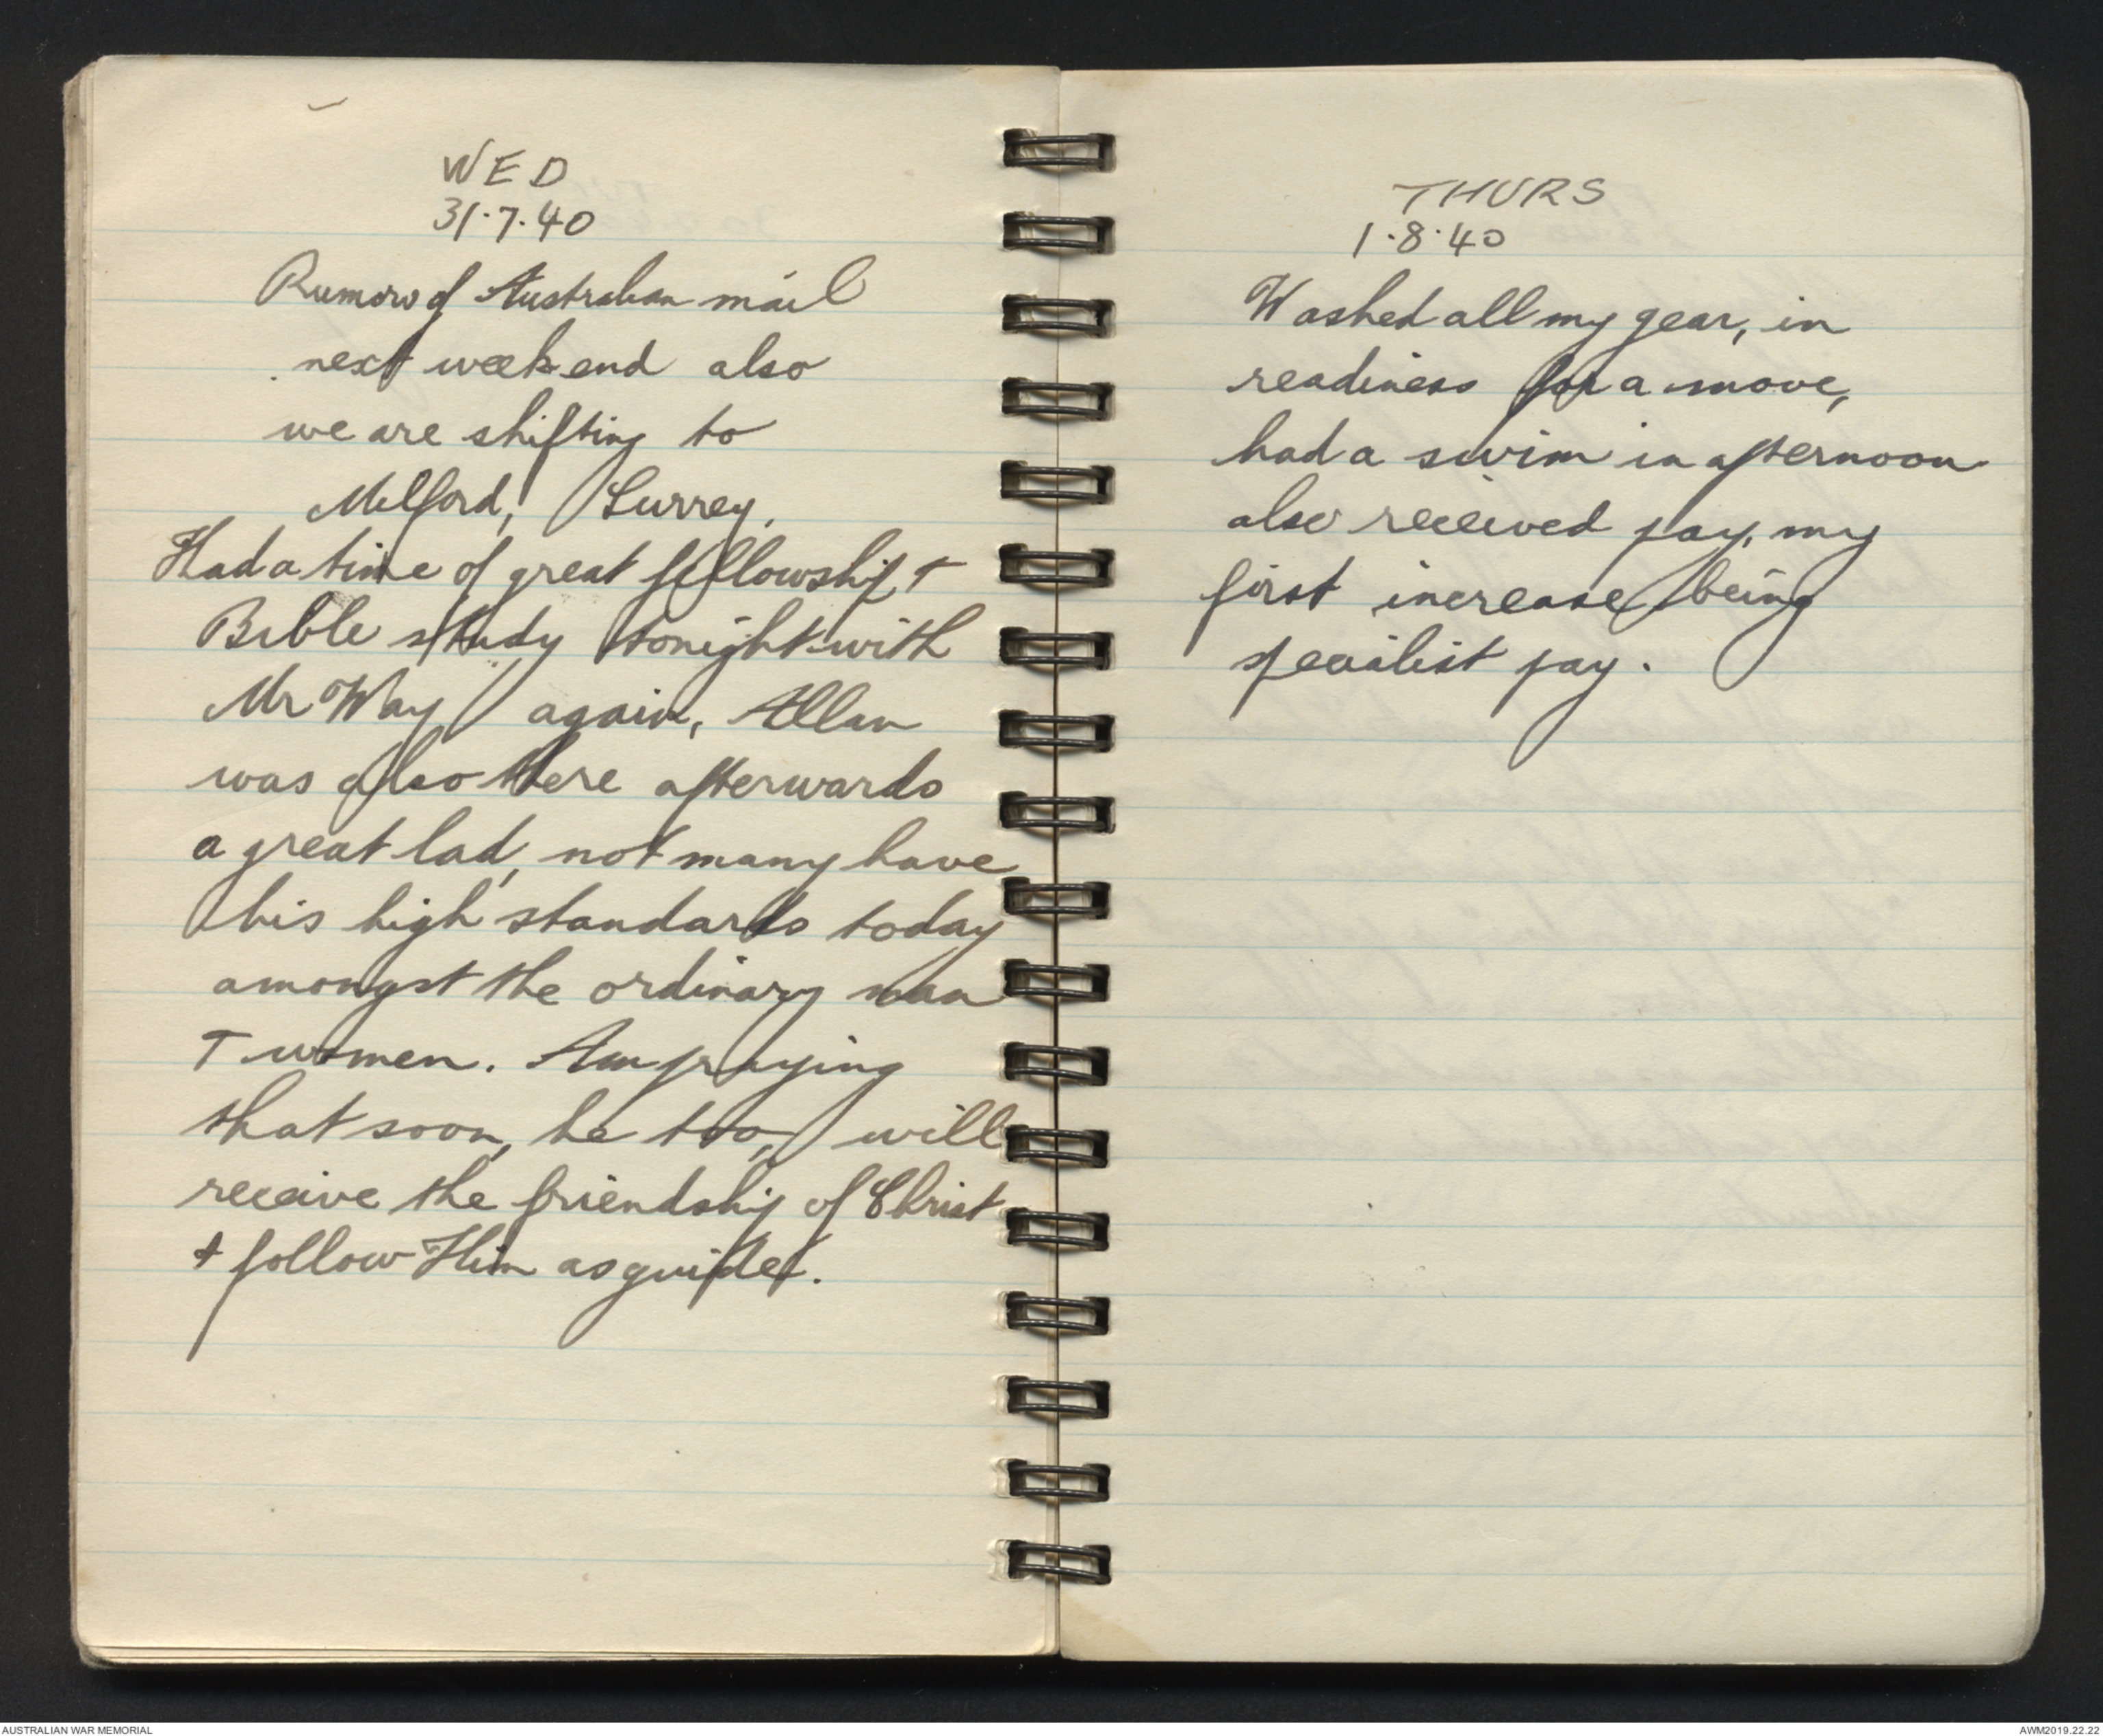 WED
31.7.40
Rumors of Australian mail
next weekend also
we are shifting to
Milford, Surrey.
Had a time of great fellowship +
Bible study tonight with
Mr Way again, Allan
was also there afterwards
a great lad, not many have
his high standards today
amongst the ordinary man
+ women. Am praying
that soon, he too, will
receive the friendship of Christ
+ follow Him as guide.
THURS
1.8.40
Washed all my gear, in
readiness for a move,
had a swim in afternoon
also received pay, my
first increase being
specialist pay.
AUSTRALIAN WAR MEMORIAL
AWM2019.22.22